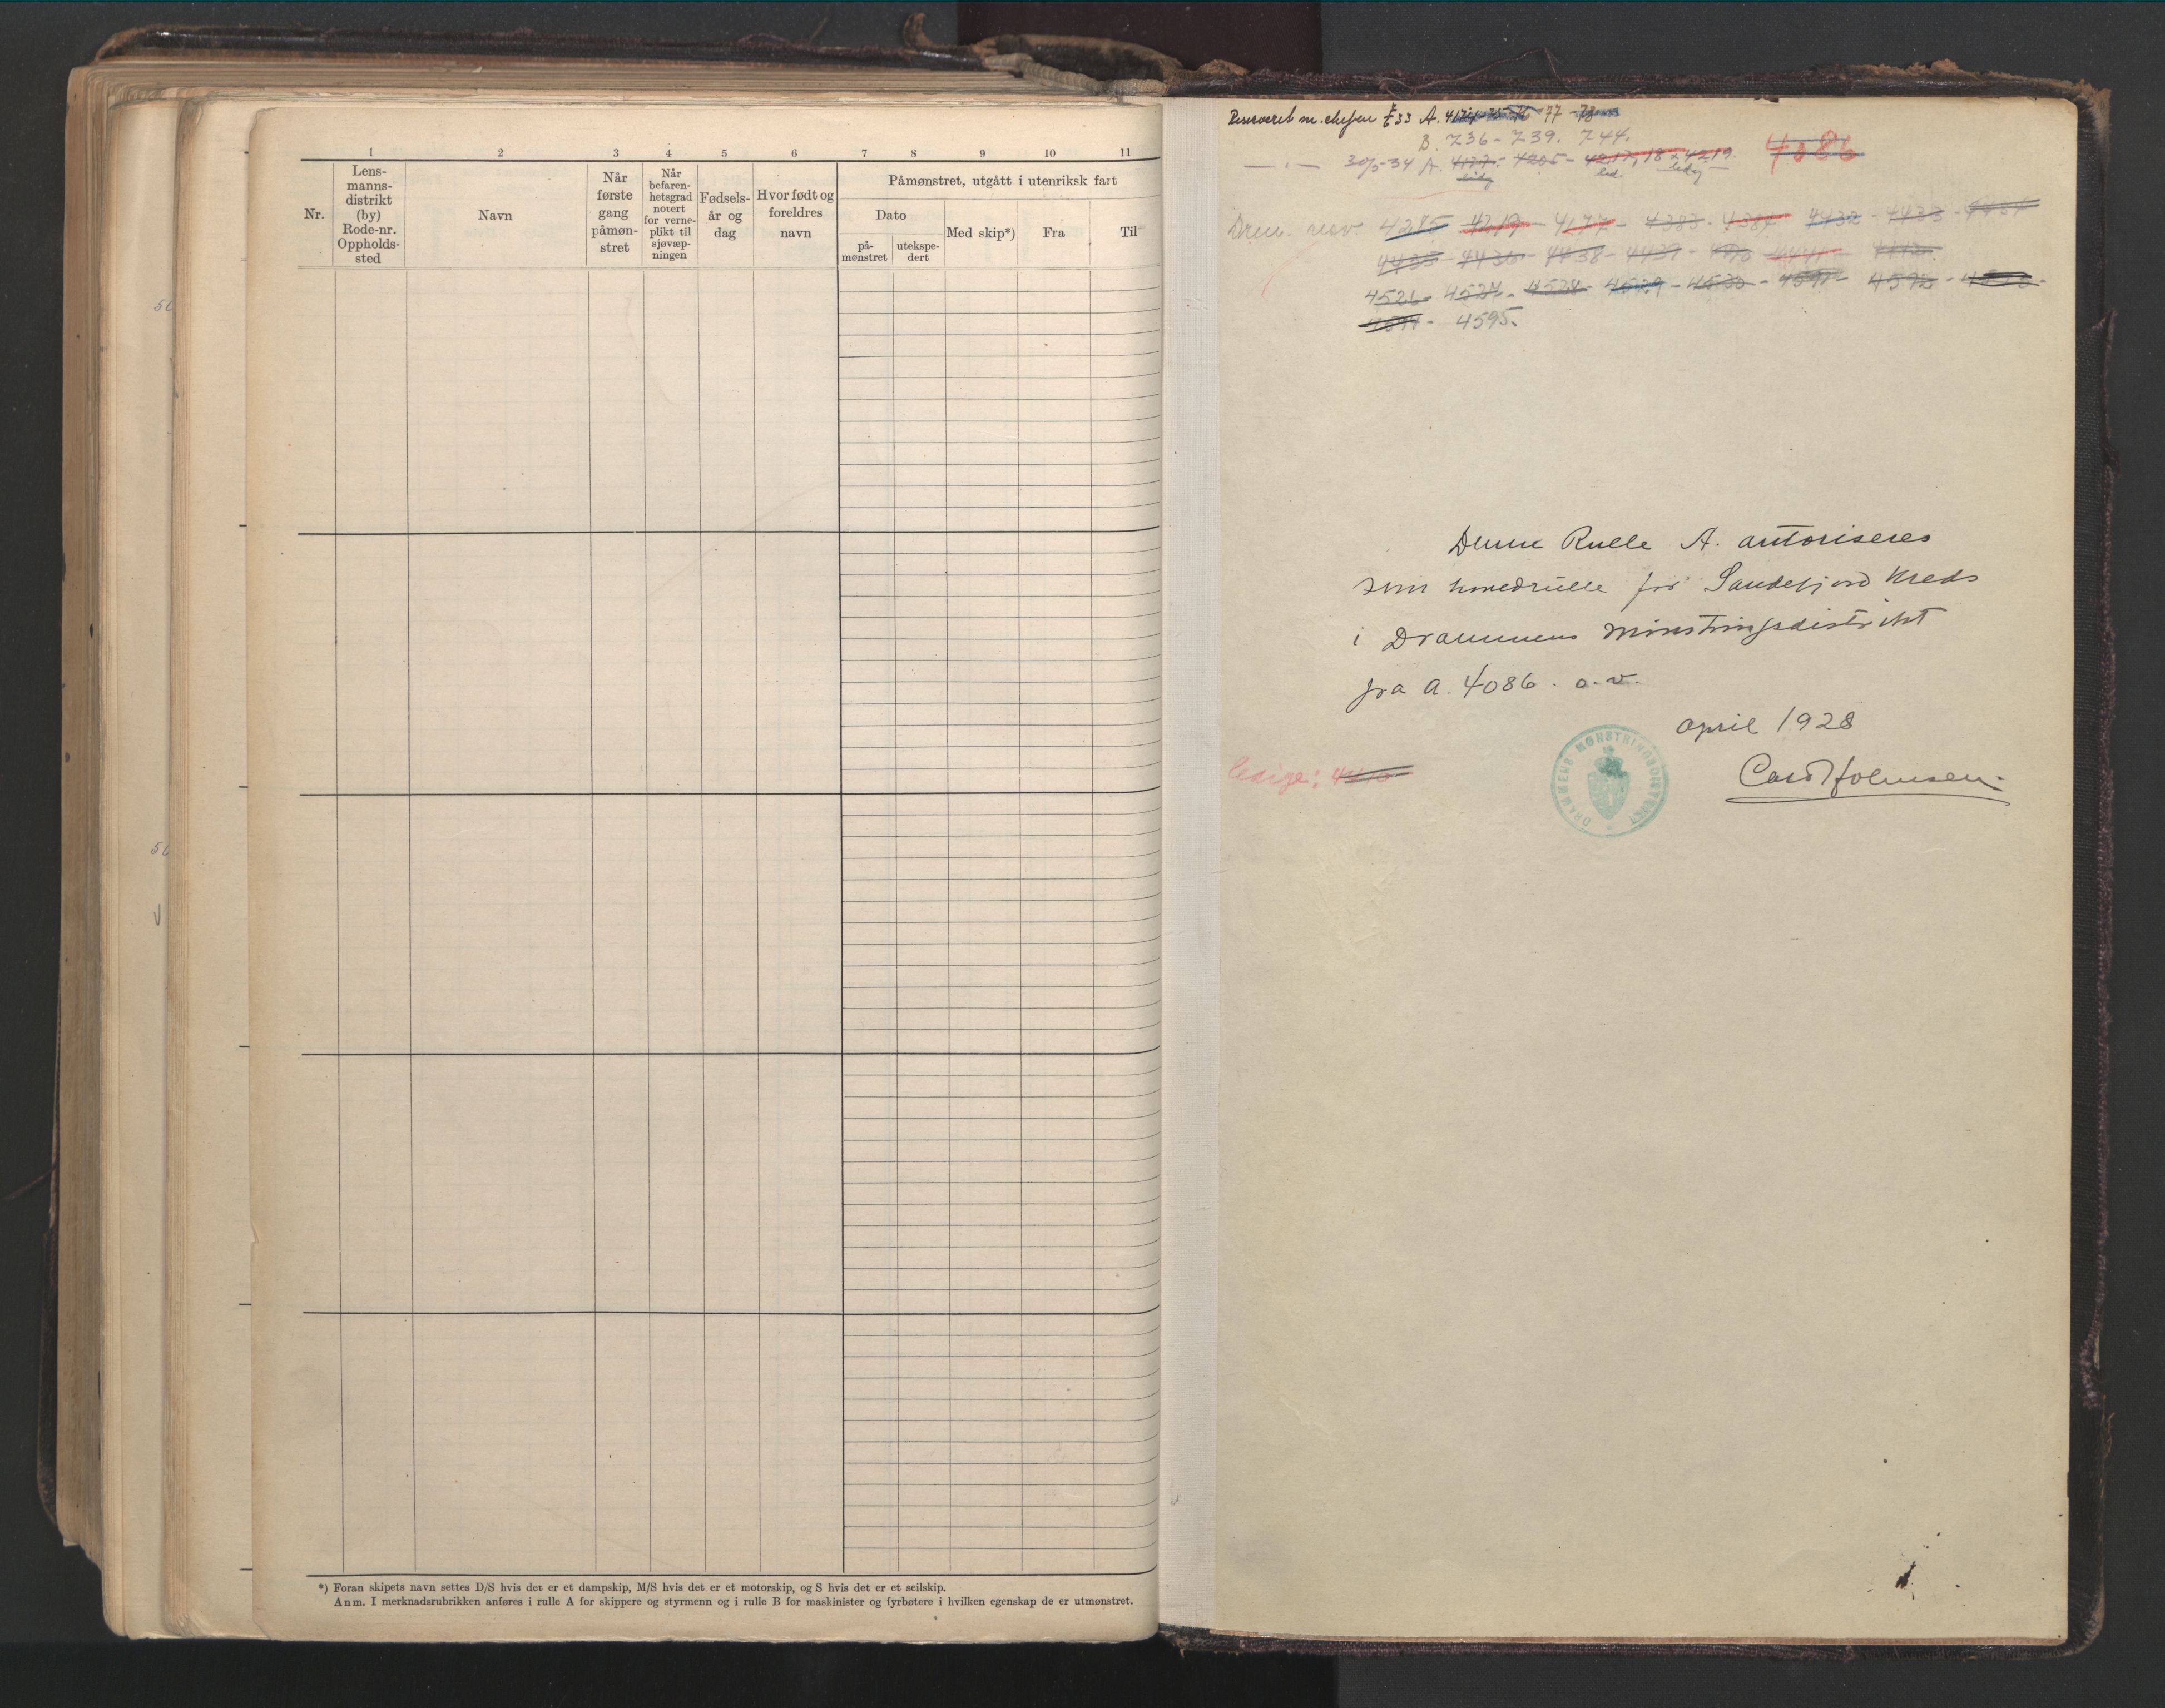 1 2 3 4 5 6 7 8 9 10 11
Nr.
Lens-
manns-
distrikt
(by)
Rode-nr.
Oppholds-
sted
Navn
Når
første
gang
påmøn-
stret
Når
befaren-
hetsgrad
notert
for verne-
plikt til
sjøvæp-
ningen
Fødsels-
år og
dag
Hvor født og
foreldres
navn
Påmønstret, utgått i utenriksk fart
Dato
på-
mønstret
utekspe-
dert
Med skip*)
Fra
Til
*) Foran skipets navn settes D/S hvis det er et dampskip, M/S hvis det er et motorskip, og S hvis det er et seilskip.
Anm. I merknadsrubrikken anføres i rulle A for skippere og styrmenn og i rulle B for maskinister og fyrbøtere i hvilken egenskap de er utmønstret.
Reservert m. chefen 33 A. 4174-75-76-77-78
B. 736-739. 744.
34 A. 4177- 4205- 4217, 18 4219.
led. ledig
4086
4285 4219 4177- 4383- 4387 4432- 4433-
4435- 4436- 4438- 4439-
4526- 4527- 4528- 4529- 4530- 4591- 4592-
4595.
Denne Rulle A. autoriseres
som hovedrulle for Sandefjord Kreds
i Drammens Mønstringsdistrikt
fra A. 4086 o. v.
April 1928
Carl Holmsen
ledige:
DRAMMENS MØNSTRINGSDISTRIKT